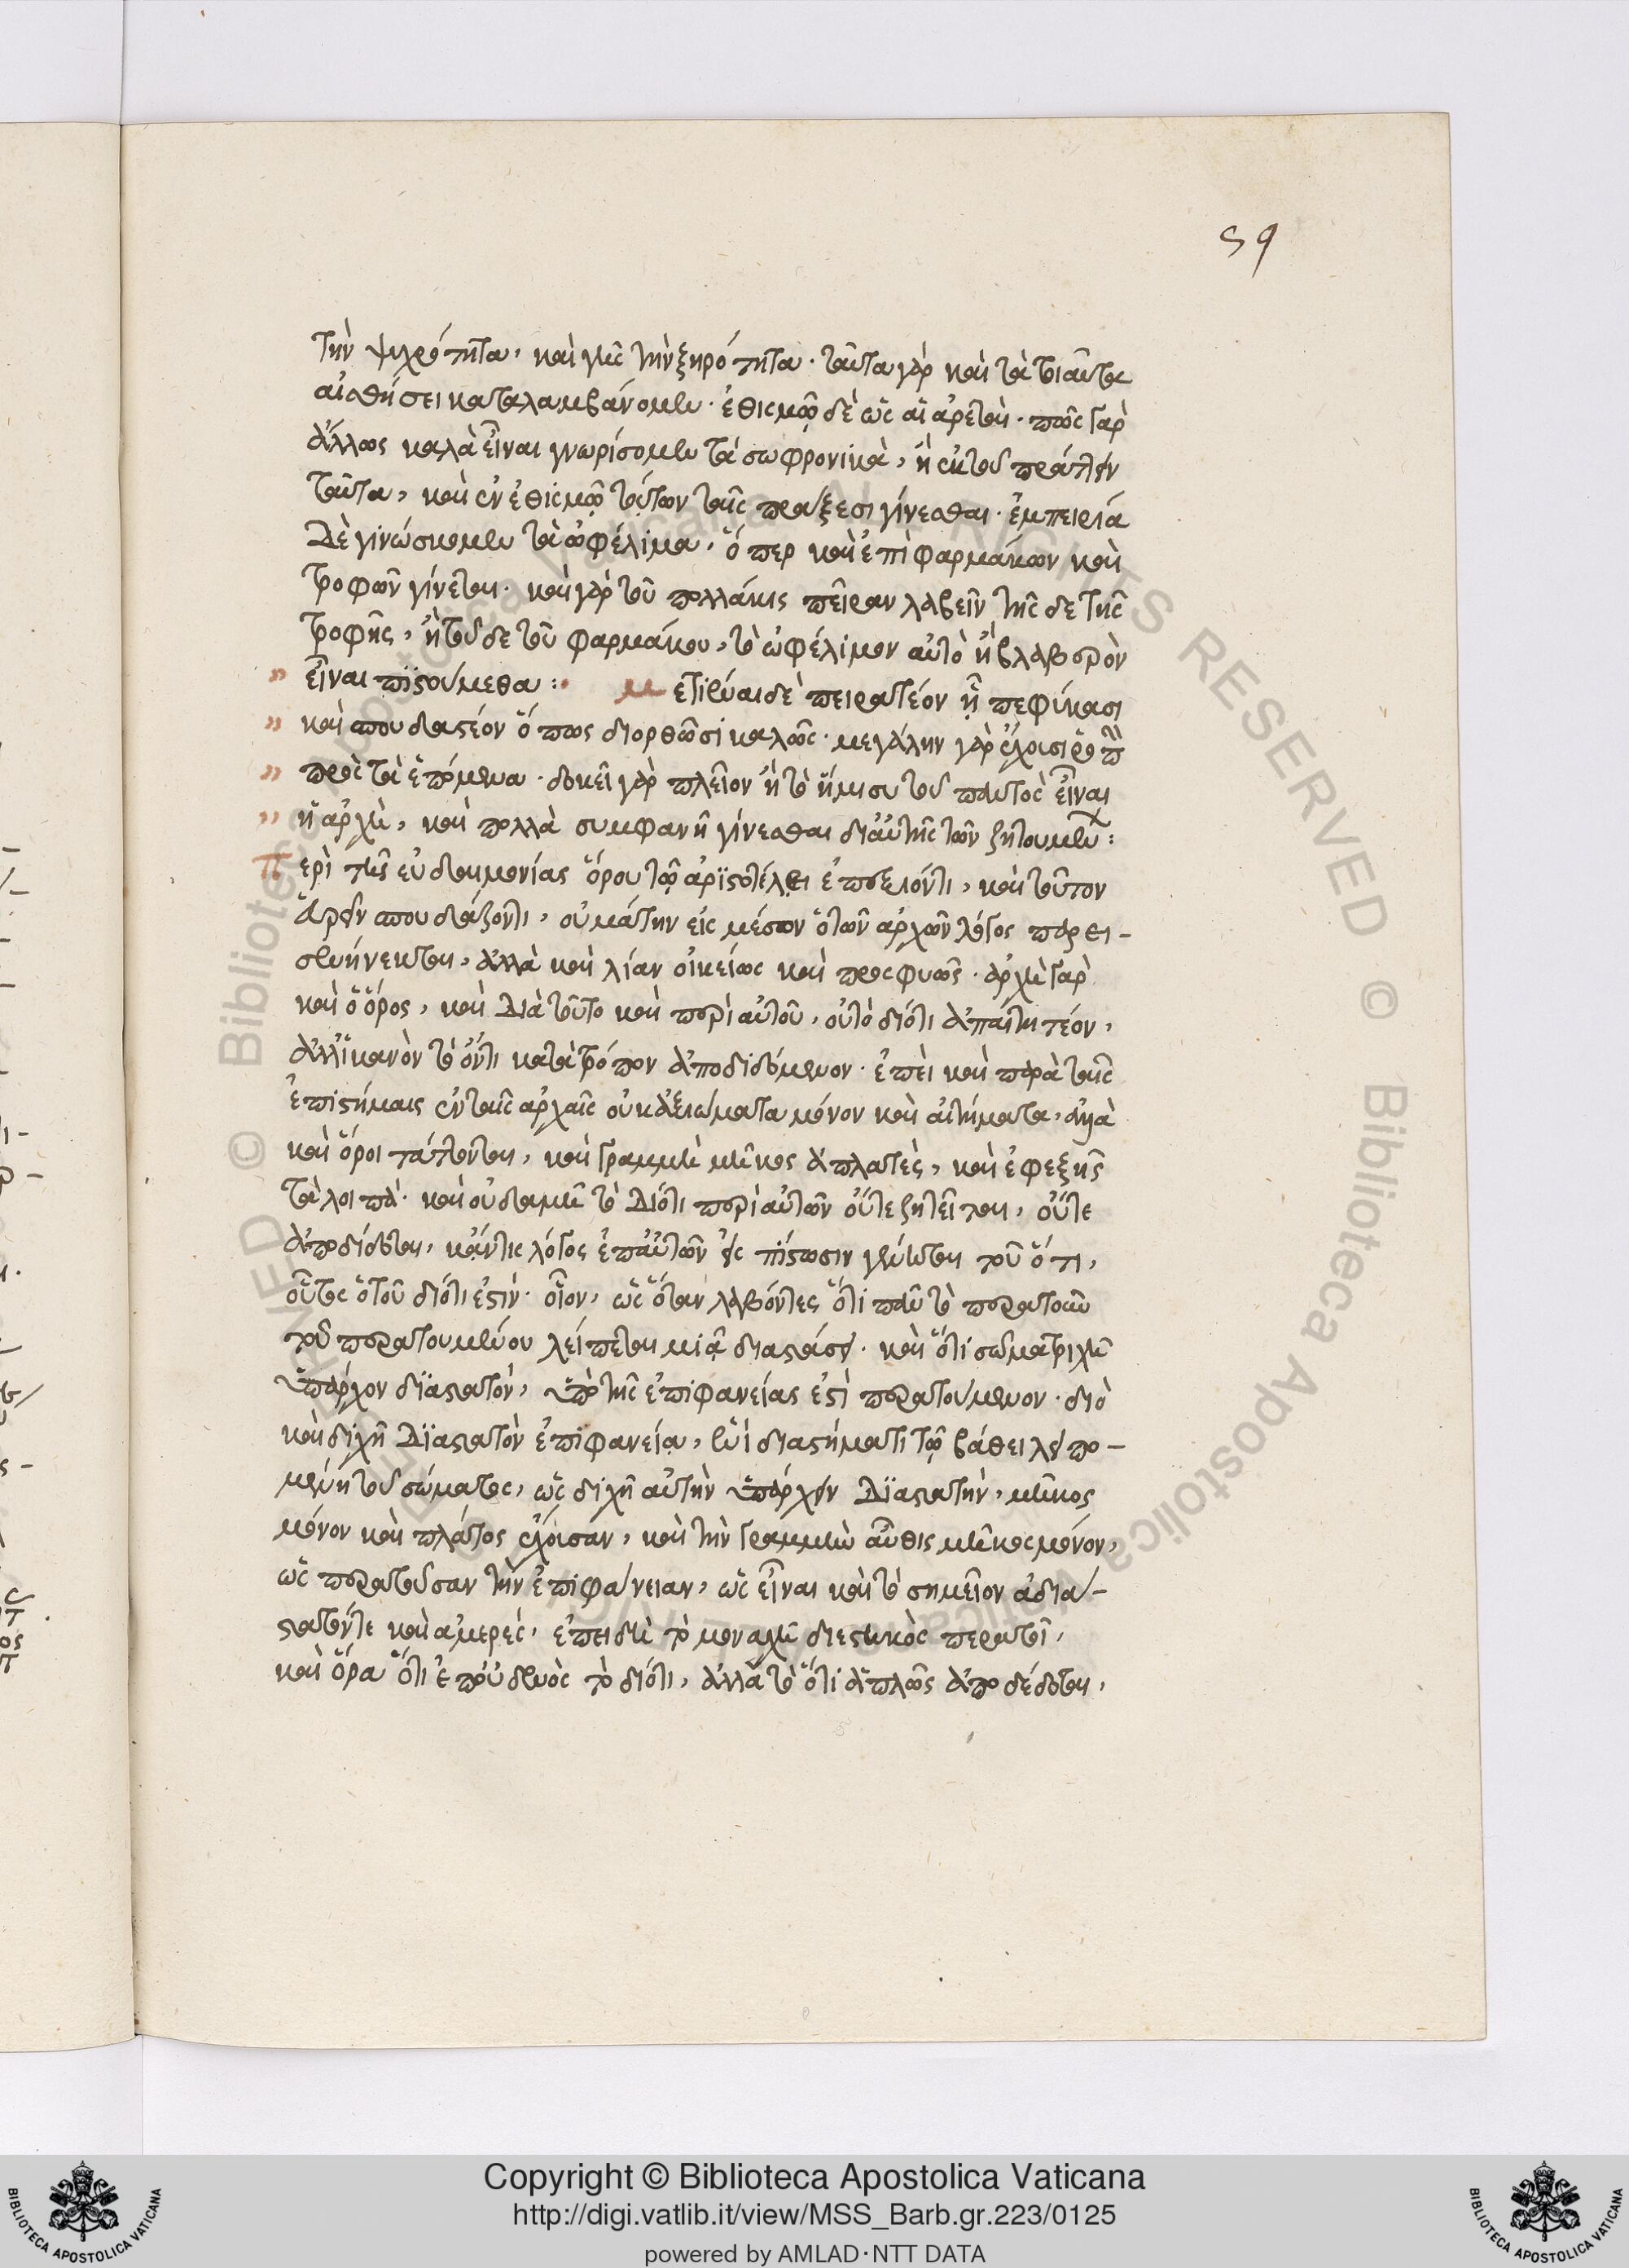 59
τὴν ψυχρότητα, καὶ γῆς τὴν ξηρότητα. ταῦτα γὰρ καὶ τὰ τοιαῦτα
αἰσθήσει καταλαμβάνομεν. ἐθισμῷ δὲ ὡς αἱ ἀρεταί. πῶς γὰρ
ἄλλως καλὰ εἶναι γνωρίσομεν τὰ σωφρονικὰ, ἢ ἐκ τοῦ πράττειν
ταῦτα, καὶ ἐν ἐθισμῷ τούτων ταῖς πράξεσι γίνεσθαι. ἐμπειρία
δὲ γινώσκομεν τὰ ὠφέλιμα, ὅπερ καὶ ἐπὶ φαρμάκων καὶ
τροφῶν γίνεται. καὶ γὰρ τοῦ πολλάκις πεῖραν λαβεῖν τῆς δε τῆς
τροφῆς, ἢ τοῦδε τοῦ φαρμάκου, τὸ ὠφέλιμον αὐτὸ ἢ βλαβερὸν
" εἶναι πιστούμεθα : μετιέναι δὲ πειρατέον ᾗ πεφύκασι
" καὶ σπουδαστέον ὅπως διορθῶσι καλῶς. μεγάλην γὰρ ἔχουσι ῥοπὴ
" πρὸς τὰ ἑπόμενα. δοκεῖ γὰρ πλεῖον ἢ τὸ ἥμισυ τοῦ παντὸς εἶναι
" ἡ ἀρχὴ, καὶ πολλὰ συμφανῆ γίνεσθαι δι' αὐτῆς τῶν ζητουμένων :
Περὶ τῆς εὐδαιμονίας ὅρου τῷ ἀριστοτέλει ἐποξιόντι, καὶ τοῦτον
εὑρεῖν σπουδάζοντι, οὐ μάτην εἰς μέσον ὁ τῶν ἀρχῶν λόγος παρει-
σενήνεκται, ἀλλὰ καὶ λίαν οἰκείως καὶ προσφυῶς. ἀρχὴ γὰρ
καὶ ὁ ὅρος, καὶ διὰ τοῦτο καὶ περὶ αὐτοῦ, οὐ τὸ διότι ἀπαιτητέον,
ἀλλ' ἱκανὸν τὸ ὅντι κατὰ τρόπον ἀποδιδόμενον. ἐπεὶ καὶ παρὰ ταῖς
ἐπιστήμαις ἐν ταῖς ἀρχαῖς οὐκ ἀξιώματα μόνον καὶ αἰτήματα, ἀλλὰ
καὶ ὅροι τάττονται, καὶ γραμμὴ μῆκος ἀπλατὲς, καὶ ἐφεξῆς
τὰ λοιπά. καὶ οὐδαμῆ τὸ διότι περὶ αὐτῶν οὔτε ζητεῖται, οὔτε
ἀποδίδοται, κἄν τις λόγος ἐπ' αὐτῶν εἰς πίστωσιν γένηται τοῦ ὅτι,
οὗτος ὁ τοῦ διότι ἐστίν. οἷον, ὡς ὅταν λαβόντες ὅτι πᾶν τὸ περατοῦν
τοῦ περατουμένου λείπεται μιᾷ διαστάσει. καὶ ὅτι σῶμα τριχῆ
ὑπάρχον διαστατὸν, ὑπὸ τῆς ἐπιφανείας ἐστὶ περατούμενον. διὸ
καὶ διχῆ διαστατὸν ἐπιφανεία, ἑνὶ διαστήματι τῷ βάθει λειπο-
μένη τοῦ σώματος, ὡς διχῆ αὐτὴν ὑπάρχειν διαστατὴν, μῆκος
μόνον καὶ πλάτος ἔχουσαν, καὶ τὴν γραμμὴν αὖθις μῆκος μόνον,
ὡς περατοῦσαν τὴν ἐπιφάνειαν, ὡς εἶναι καὶ τὸ σημεῖον ἀδιά-
στατόν τε καὶ ἀμερές, ἐπειδὴ τὸ μοναχῆ διεστηκὸς περατοῖ,
καὶ ὅρα ὅτι ἐπ' οὐδενὸς τὸ διότι, ἀλλὰ τὸ ὅτι ἁπλῶς ἀποδέδοται,
Copyright © Biblioteca Apostolica Vaticana
http://digi.vatlib.it/view/MSS_Barb.gr.223/0125
powered by AMLAD·NTT DATA